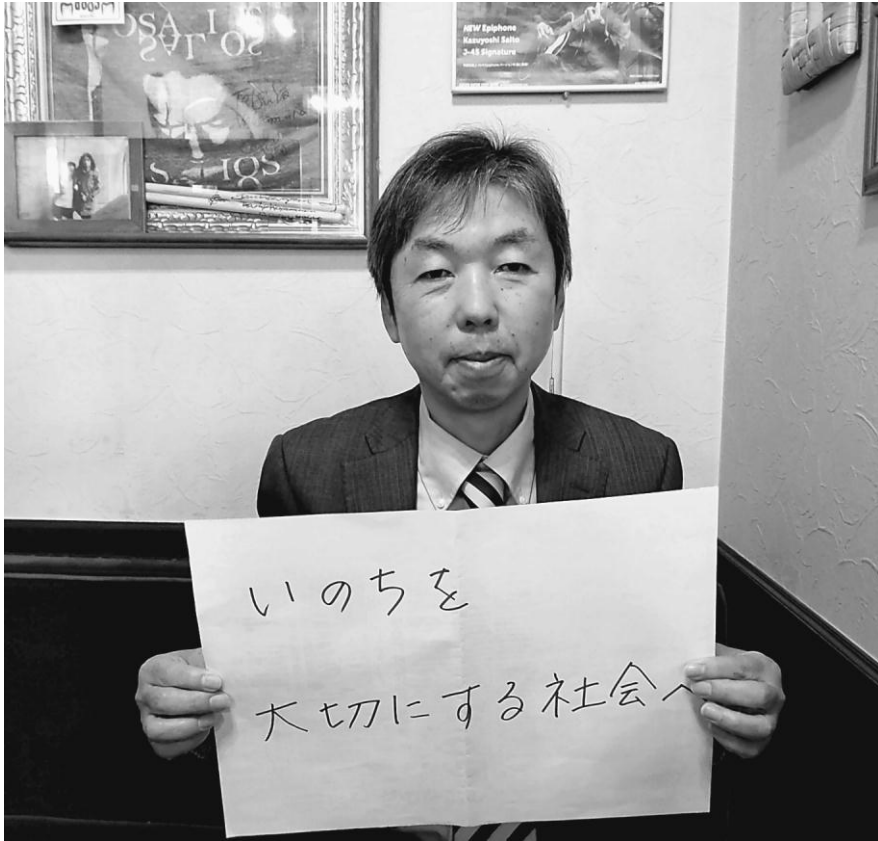 NEW Epiphone
Kazuyoshi Saito
J-45 Signature
いのちを
大切にする社会へ